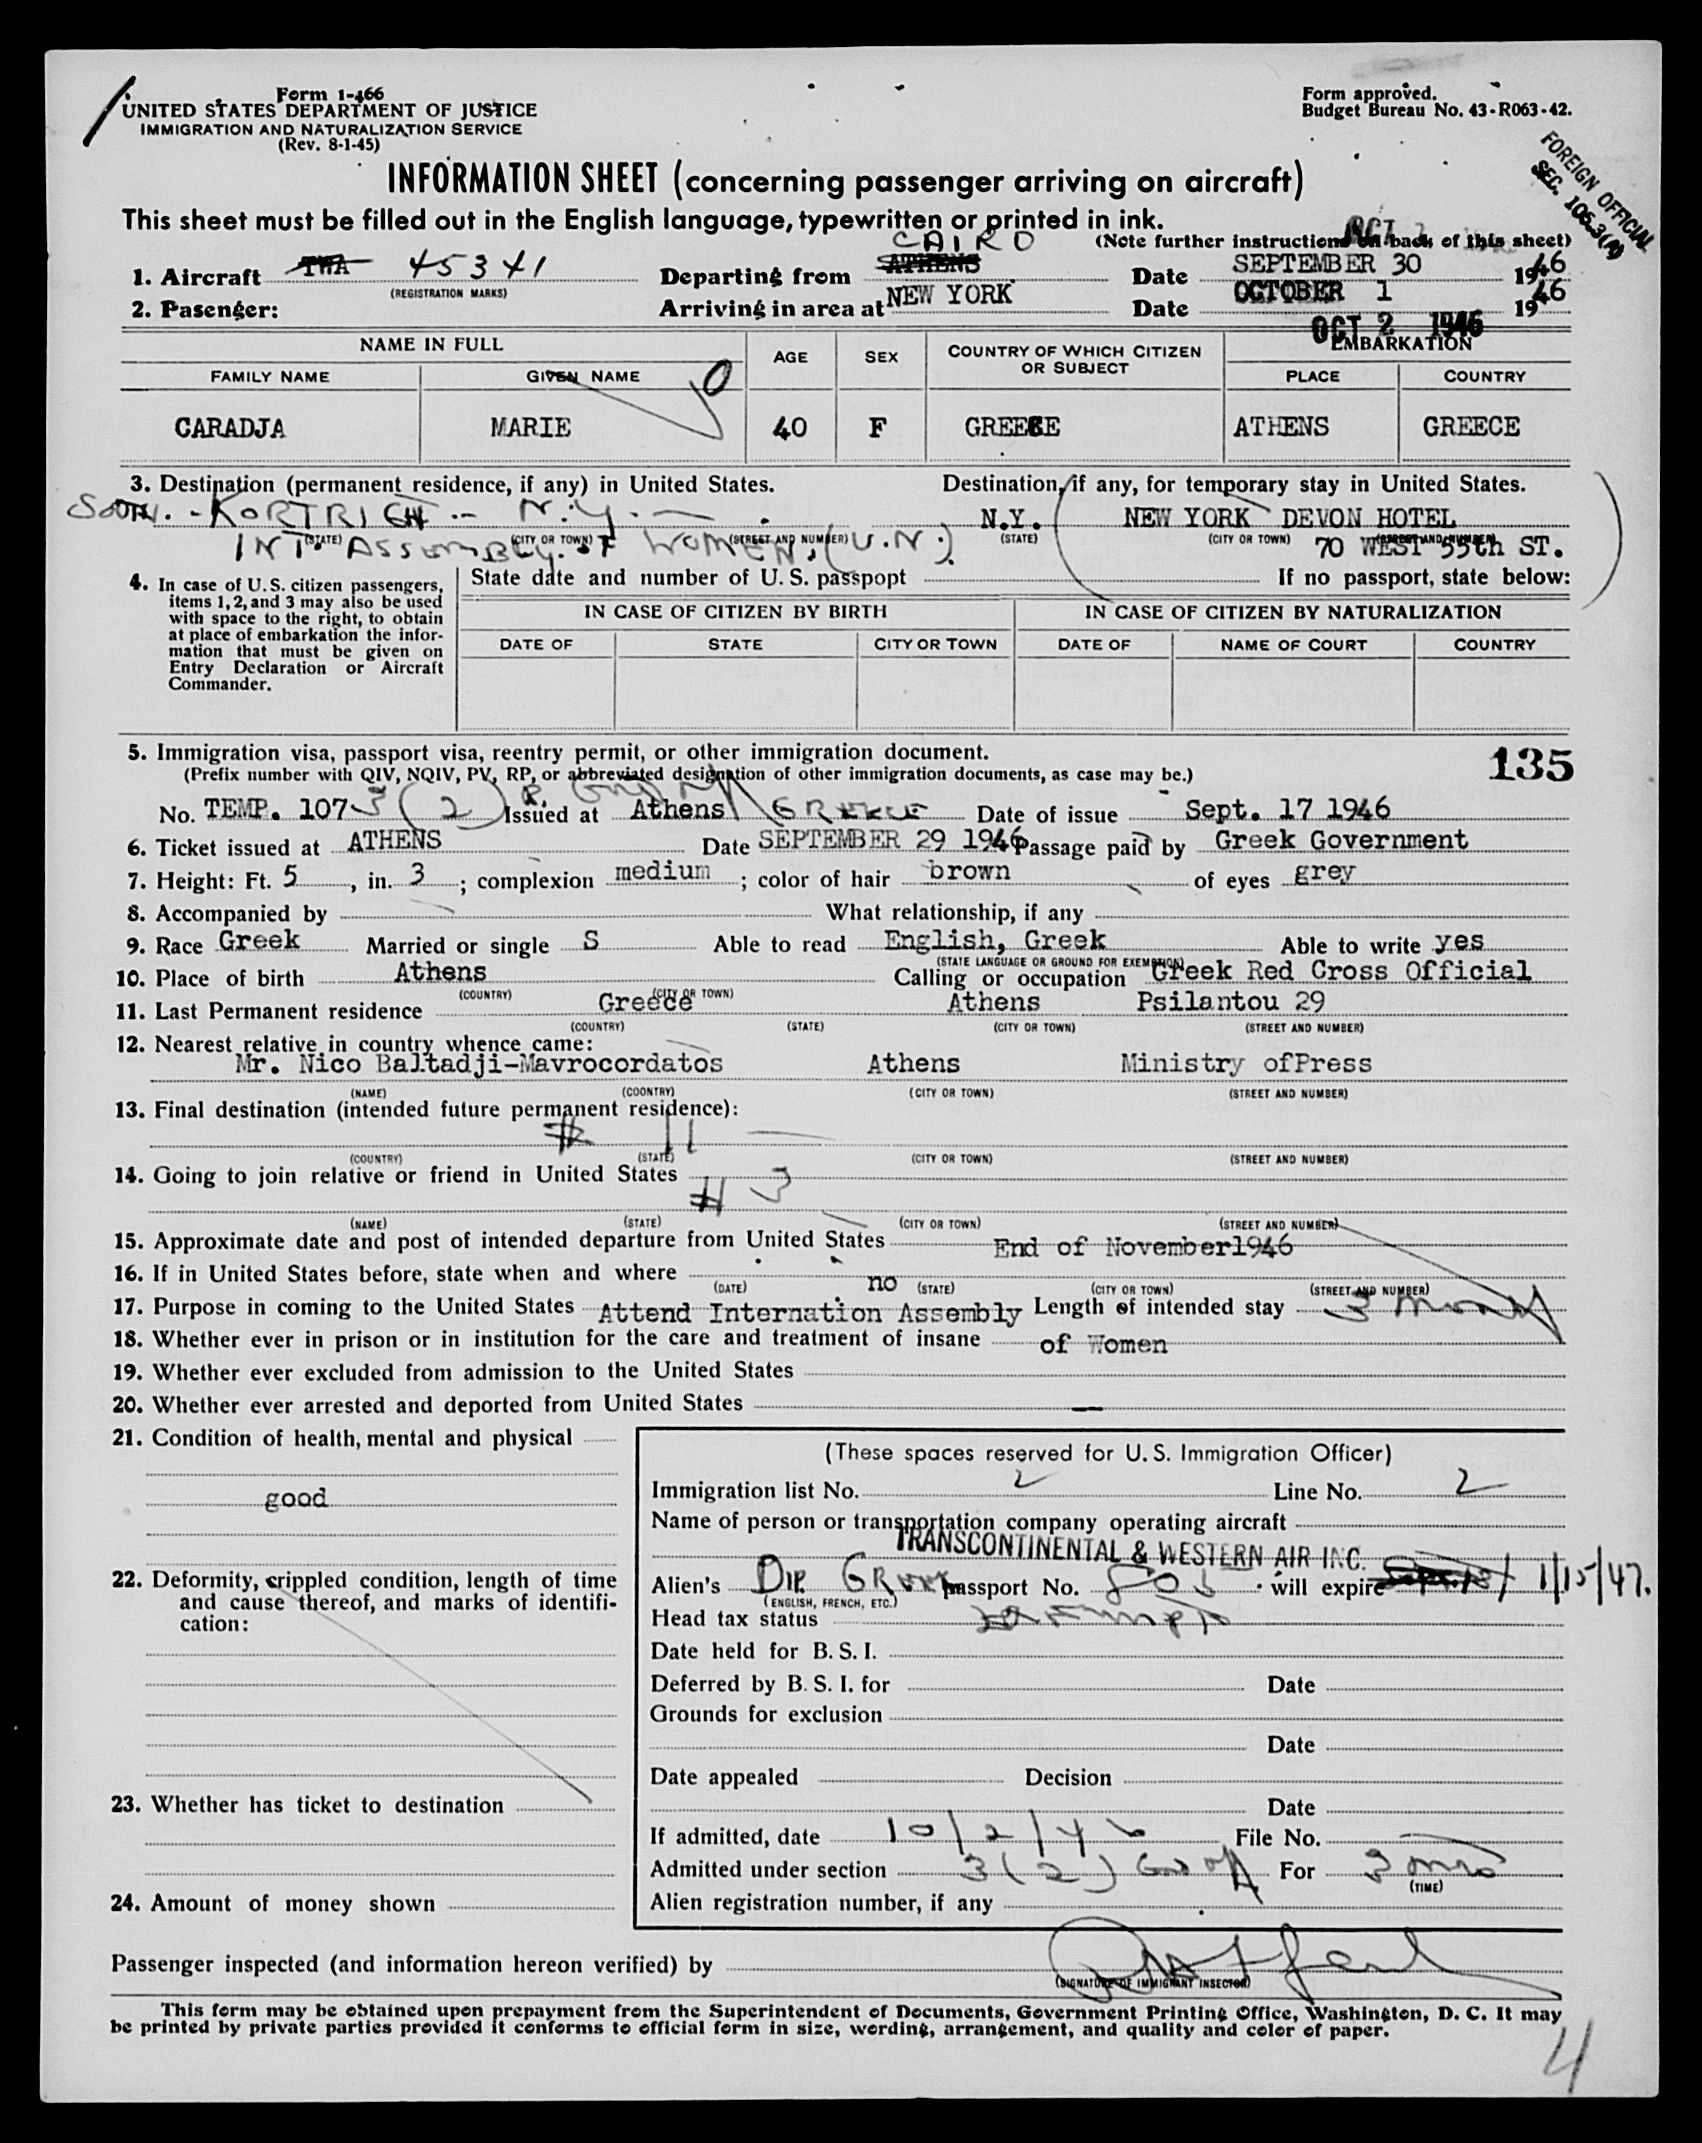 Form 1-466
UNITED STATES DEPARTMENT OF JUSTICE
IMMIGRATION AND NATURALIZATION SERVICE
(Rev. 8-1-45)
Form approved.
Budget Bureau No. 43-R063-42.
FOREIGN OFFICIAL
SEC. 106.3(A)
INFORMATION SHEET (concerning passenger arriving on aircraft)
This sheet must be filled out in the English language, typewritten or printed in ink.
(Note further instructions on back of this sheet)
CAIRO
1. Aircraft TWA 45341 Departing from ATHENS Date SEPTEMBER 30 1946
(REGISTRATION MARKS)
2. Pasenger: Arriving in area at NEW YORK Date OCTOBER 1 1946
OCT 2 1946
NAME IN FULL AGE SEX COUNTRY OF WHICH CITIZEN OR SUBJECT EMBARKATION
FAMILY NAME GIVEN NAME PLACE COUNTRY
CARADJA MARIE 40 F GREECE ATHENS GREECE
3. Destination (permanent residence, if any) in United States. Destination, if any, for temporary stay in United States.
SOUTH. - KORTRIGH -- N.Y. - N.Y. NEW YORK DEVON HOTEL
(STATE) (CITY OR TOWN) (STREET AND NUMBER) (STATE) (CITY OR TOWN) (STREET AND NUMBER)
INT. ASSEMBLY OF WOMEN, (U.N.) 70 WEST 55th ST.
4. In case of U.S. citizen passengers, items 1, 2, and 3 may also be used with space to the right, to obtain at place of embarkation the information that must be given on Entry Declaration or Aircraft Commander.
State date and number of U.S. passpopt If no passport, state below:
IN CASE OF CITIZEN BY BIRTH IN CASE OF CITIZEN BY NATURALIZATION
DATE OF STATE CITY OR TOWN DATE OF NAME OF COURT COUNTRY
5. Immigration visa, passport visa, reentry permit, or other immigration document. 135
(Prefix number with QIV, NQIV, PV, RP, or abbreviated designation of other immigration documents, as case may be.)
No. TEMP. 107 3(2) Issued at Athens GREECE Date of issue Sept. 17 1946
6. Ticket issued at ATHENS Date SEPTEMBER 29 1946 Passage paid by Greek Government
7. Height: Ft. 5, in. 3; complexion medium; color of hair brown of eyes grey
8. Accompanied by What relationship, if any
9. Race Greek Married or single S Able to read English, Greek Able to write yes
(STATE LANGUAGE OR GROUND FOR EXEMPTION)
10. Place of birth Athens Calling or occupation Greek Red Cross Official
(COUNTRY) (CITY OR TOWN)
11. Last Permanent residence Greece Athens Psilantou 29
(COUNTRY) (STATE) (CITY OR TOWN) (STREET AND NUMBER)
12. Nearest relative in country whence came:
Mr. Nico Baltadji-Mavrocordatos Athens Ministry ofPress
(NAME) (COONTRY) (CITY OR TOWN) (STREET AND NUMBER)
13. Final destination (intended future permanent residence):
# 11 -
(COUNTRY) (STATE) (CITY OR TOWN) (STREET AND NUMBER)
14. Going to join relative or friend in United States
# 3
(NAME) (STATE) (CITY OR TOWN) (STREET AND NUMBER)
15. Approximate date and post of intended departure from United States End of November1946
16. If in United States before, state when and where no
(DATE) (STATE) (CITY OR TOWN) (STREET AND NUMBER)
17. Purpose in coming to the United States Attend Internation Assembly Length of intended stay 3
18. Whether ever in prison or in institution for the care and treatment of insane of Women
19. Whether ever excluded from admission to the United States
20. Whether ever arrested and deported from United States —
21. Condition of health, mental and physical
good
22. Deformity, crippled condition, length of time and cause thereof, and marks of identification:
23. Whether has ticket to destination
24. Amount of money shown
(These spaces reserved for U.S. Immigration Officer)
Immigration list No. 2 Line No. 2
Name of person or transportation company operating aircraft
TRANSCONTINENTAL & WESTERN AIR INC.
Alien's DIP. GREEK passport No. will expire 1/15/47.
(ENGLISH, FRENCH, ETC.)
Head tax status Exempt
Date held for B.S.I.
Deferred by B.S.I. for Date
Grounds for exclusion
Date
Date appealed Decision
Date
If admitted, date 10/2/46 File No.
Admitted under section 3(2) For 3 mos
(TIME)
Alien registration number, if any
Passenger inspected (and information hereon verified) by
(SIGNATURE OF IMMIGRANT INSECTOR)
This form may be obtained upon prepayment from the Superintendent of Documents, Government Printing Office, Washington, D. C. It may
be printed by private parties provided it conforms to official form in size, wording, arrangement, and quality and color of paper.
4